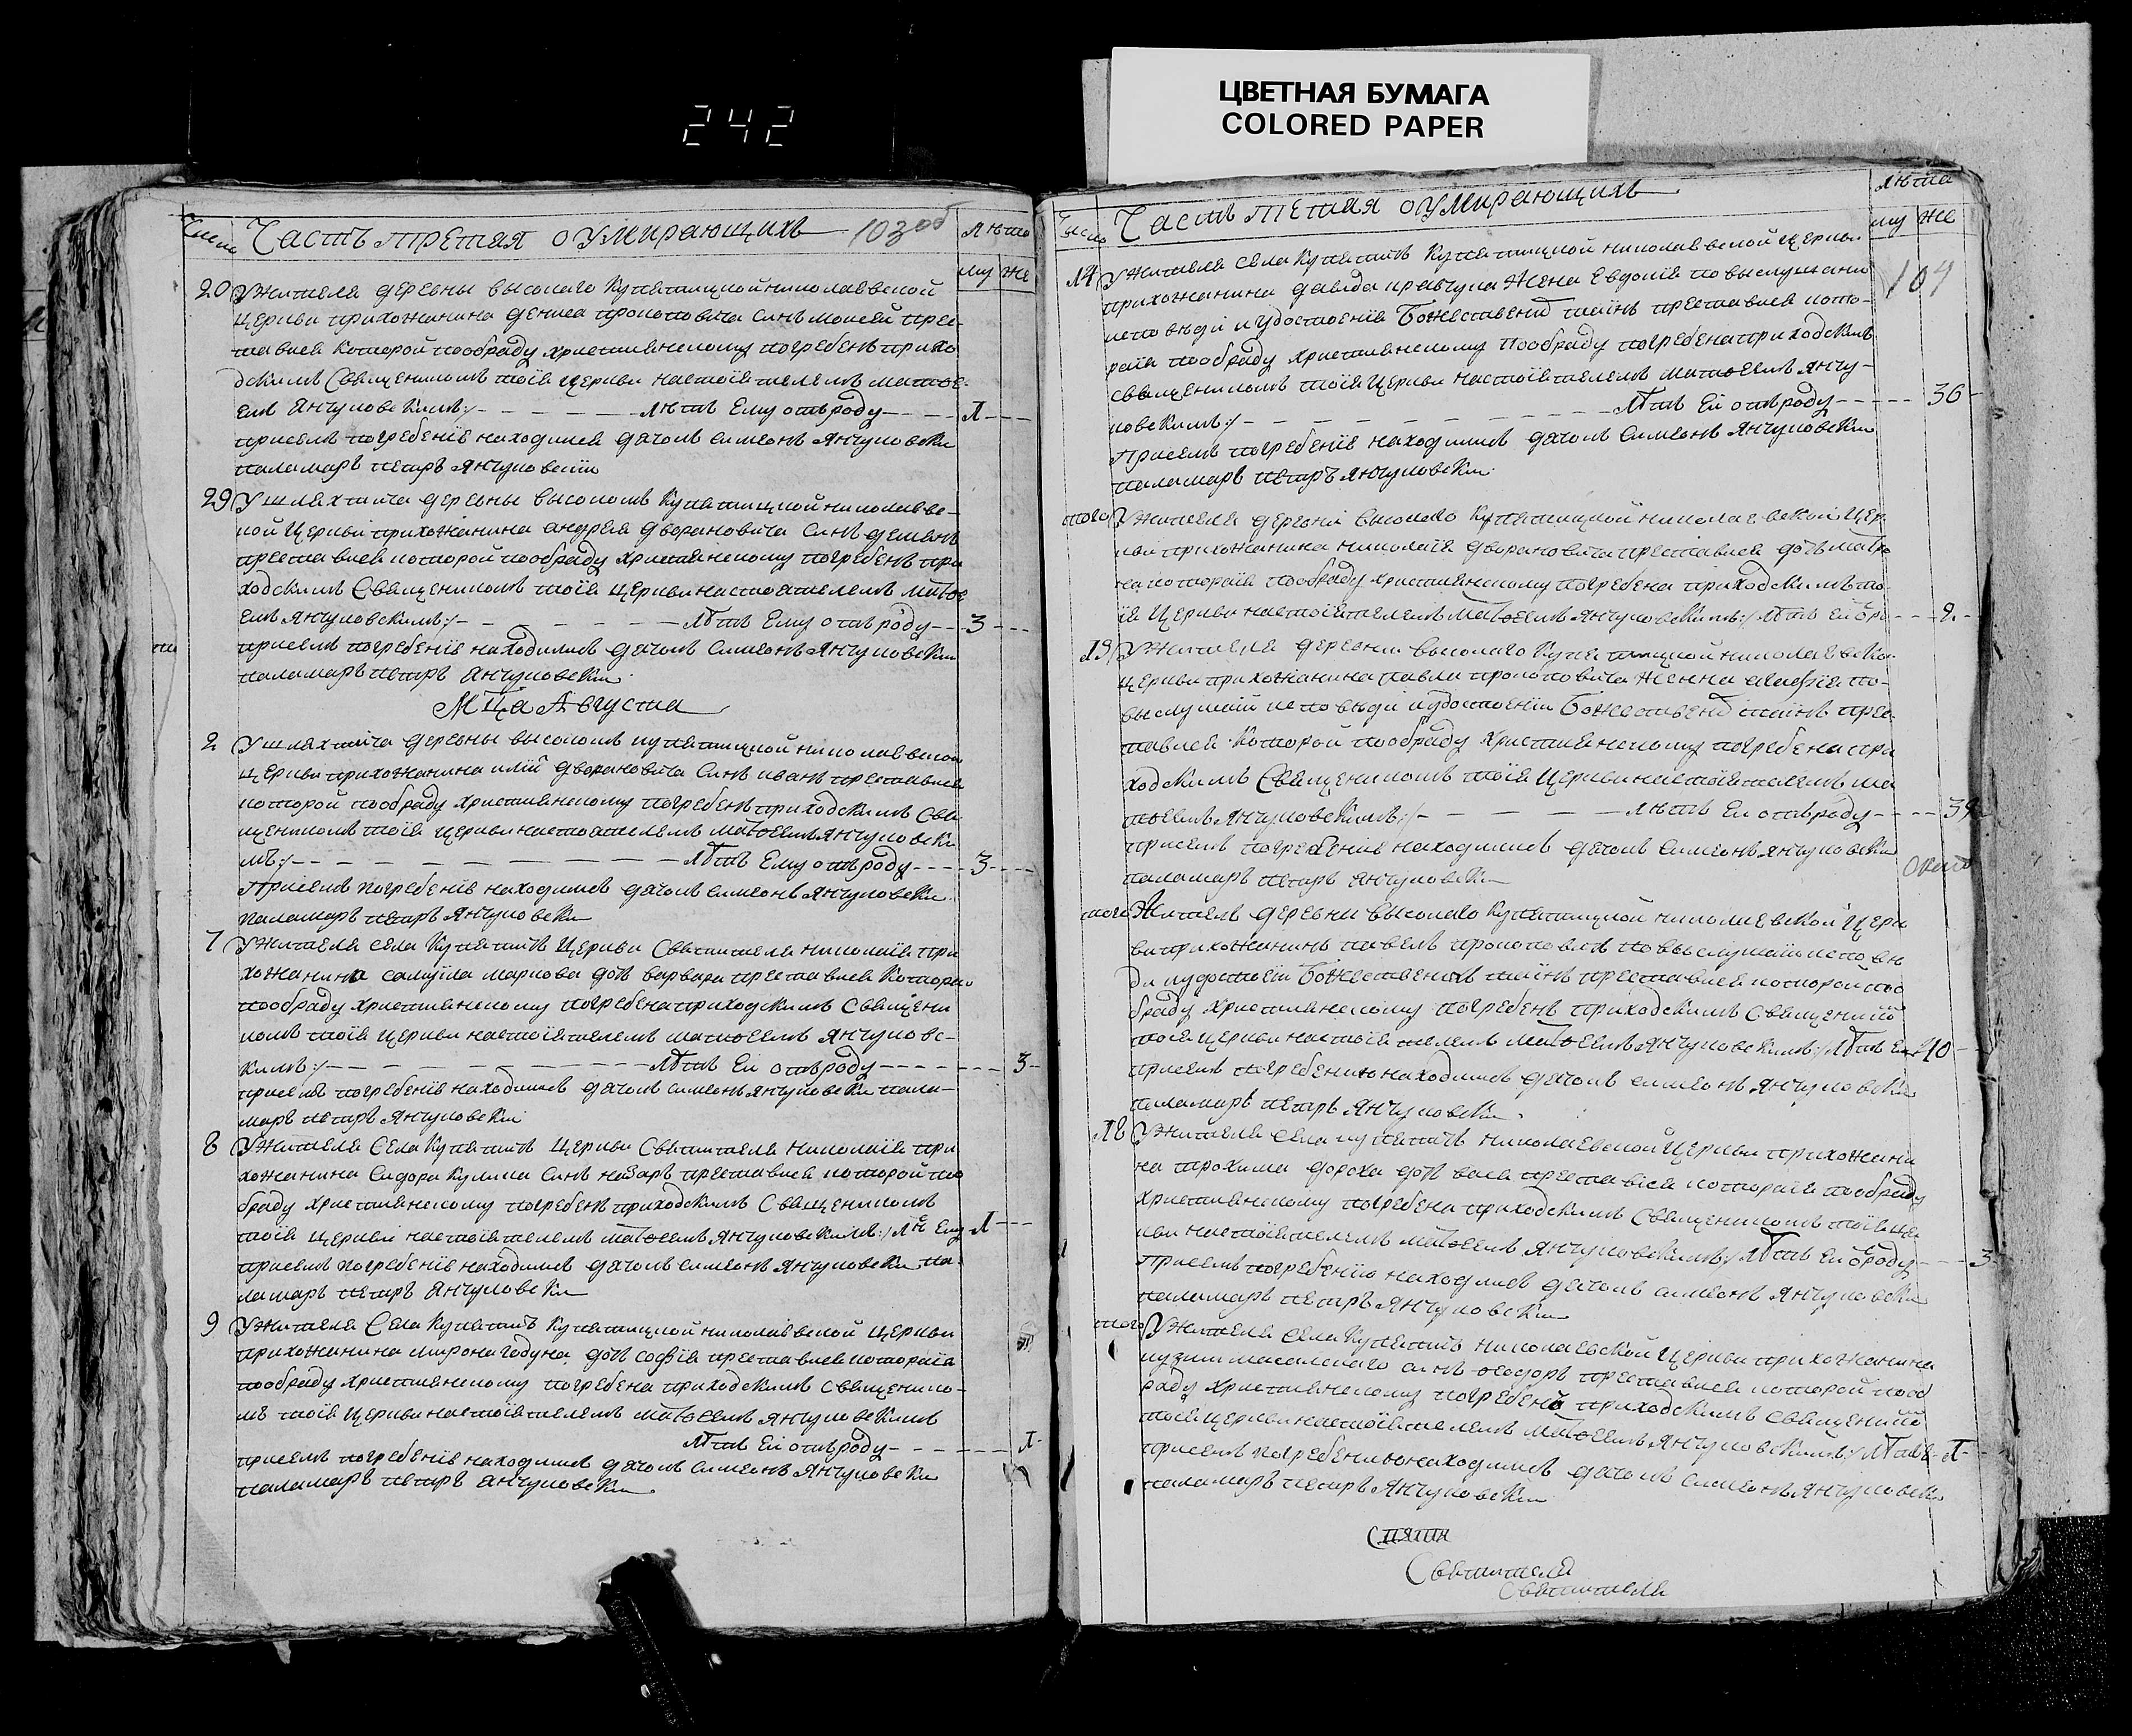 ЦВЕТНАЯ БУМАГА
COLORED PAPER
242
Число Часть третая о умирающихъ 103об лѣто
му же
20 У жителя деревны высокаго Купятицкой николаевской
церкви прихожанина дениса прокоповича синъ моисей прес-
тависа которой по обряду християнскому погребенъ прихо
дскимъ Священикомъ тоія церкви настоіятелемъ матѳе-
емъ Янчуковскимъ:/ лѣтъ Ему отъ роду 1
присемъ погребеніе находился дячокъ симеонъ Янчуковски
паламаръ петръ Янчуковскіи
29 У шляхтича деревны высокомъ Купятицкой николаевс-
кой Церкви прихожанина андрея дворановича синъ демянъ
престависа которой по обряду християнскому погребенъ при
ходскимъ Священикомъ тоія церкви настоятелемъ матѳе
емъ Янчуковскимъ:/ лѣтъ Ему отъ роду 3
присемъ погребеніе находились дячокъ симеонъ Янчуковски
паламаръ петръ Янчуковски
Мца Августа
2 У шляхтича деревны высокомъ купятицкой николаевской
церкви прихожанина иліи дворановича синъ иванъ престависа
которой по обряду християнскому погребенъ приходскимъ Свя
щеникомъ тоія церкви настоятелемъ матѳеемъ Янчуковски
мъ:/ лѣтъ Ему отъ роду 3
Присемъ погребеніе находился дячокъ симеонъ Янчуковски
паламаръ петръ Янчуковски
7 У жителя села Купятичъ Церкви Святителя николаія при
хожанина самуіла маркова дочъ варвара престависа котора
по обряду християнскому погребена приходскимъ Священи
комъ тоія церкви настоіятелемъ матѳеемъ Янчуковс-
кимъ:/ лѣтъ Ей отъ роду 3
присемъ погребеніе находился дячокъ симеонъ Янчуковски пала-
маръ петръ Янчуковски
8 У жителя Села Купятичъ Церкви Святителя николаія при
хожанина Сидора Кулиша Синъ назаръ престависа которой по о
бряду християнскому погребенъ приходскимъ Священикомъ
тоія церкви настоіятелемъ матѳеемъ Янчуковскимъ:/ лѣ Ему 1
присемъ погребеніе находился дячокъ симеонъ Янчуковски па-
ламаръ петръ Янчуковски
9 У жителя Села Купятичъ Купятицкой николаевской церкви
прихожанина мирона годуна дочъ софія престависа котораія
по обряду християнскому погребена приходскимъ священико-
мъ тоія Церкви настоіятелемъ матѳеемъ Янчуковскимъ
лѣтъ Ей отъ роду 1
присемъ погребеніе находился дячокъ симеонъ Янчуковски
паламаръ петръ Янчуковски
Число Часть третая о умирающихъ лѣта
му же
104
14 У жителя села Купятичъ Купятицкой николаевской церкви
прихожанина давида кравчука жена Евдокія по выслушани
исповѣди и удостоеніе Божественъ таинъ престависа кото-
раія по обряду християнскому по обряду погребена приходскимъ
священикомъ тоія Церкви настоіятелемъ матѳеемъ Янчу-
ковскимъ:/ лѣтъ Ей отъ роду 36
Присемъ погребеніе находился дячокъ симеонъ Янчуковски
паламаръ петръ Янчуковски
того У жителя деревни высокаго Купятицкой николаевской цер
кви прихожанина николаія дворановича престависа дочъ матро
на котораія по обряду християнскому погребена приходскимъ то-
ія Церкви настоіятелемъ матѳеемъ Янчуковскимъ:/ лѣтъ Ей о ро 2
15 У жителя деревни высокаго Купятицкой николаевской
церкви прихожанина павла прокоповича женна по-
выслушаіи исповѣди и удостоеніи Божественъ таинъ прес-
тависа Которой по обряду християнскому погребена при
ходскимъ Священикомъ тоія церкви настоіятелемъ ма
тѳеемъ Янчуковскимъ:/ лѣтъ Ей отъ роду
присемъ погребеніе находился дячокъ симеонъ Янчуковски
паламаръ петръ Янчуковски
того Житель деревни высокаго Купятицкой николаевской Церк
ви прихожанинъ павелъ прокоповичъ по выслушаіи исповѣ
ди и удостоеіи Божественихъ таинъ престависа которой по о
бряду християнскому погребенъ приходскимъ Священико
тоія церкви настоіятелемъ матѳеемъ Янчуковскимъ:/ лѣтъ Ему 40
присемъ погребению находился дячокъ симеонъ Янчуковски
паламаръ петръ Янчуковски
18 У жителя села купятичъ николаевской Церкви прихожани
на трохима дороха дочъ престависа котораія по обряду
християнскому погребена приходскимъ Священикомъ тоія це
кви настоіятелемъ матѳеемъ Янчуковскимъ:/ лѣтъ Ей о роду 3
Присемъ погребению находился дячокъ симеонъ Янчуковски
паламаръ петръ Янчуковски
того У жителя села Купятичъ николаевской Церкви прихожанина
кузми синъ ѳеодоръ престависа которой по об
ряду християнскому погребенъ приходскимъ священико
тоія церкви настоіятелемъ матѳеемъ Янчуковскимъ:/ лѣтъ 1
присемъ погребению находился дячокъ симеонъ Янчуковски
паламаръ петръ Янчуковски
Святителя
Святителя